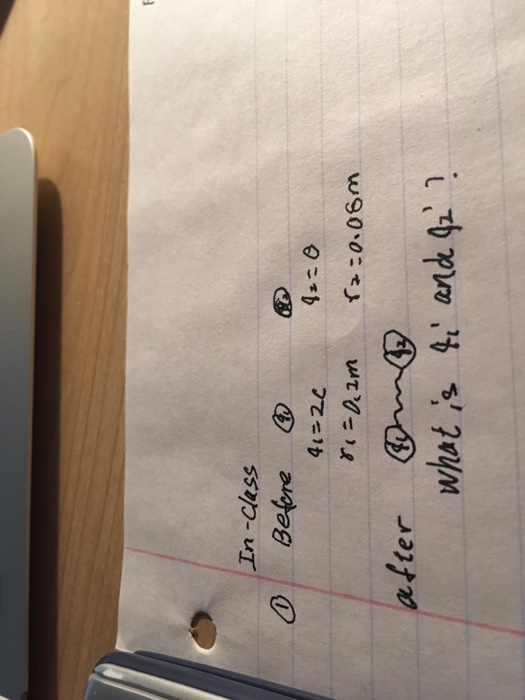 In-class
① Before q₁ q₂
q₁=2C q₂=0
r₁=0.2m r₂=0.08m
after q₁ q₂
what is q₁' and q₂'?